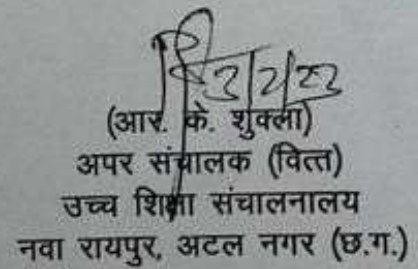 3/2/23
(आर. के. शुक्ला)
अपर संचालक (वित्त)
उच्च शिक्षा संचालनालय
नवा रायपुर, अटल नगर (छ.ग.)